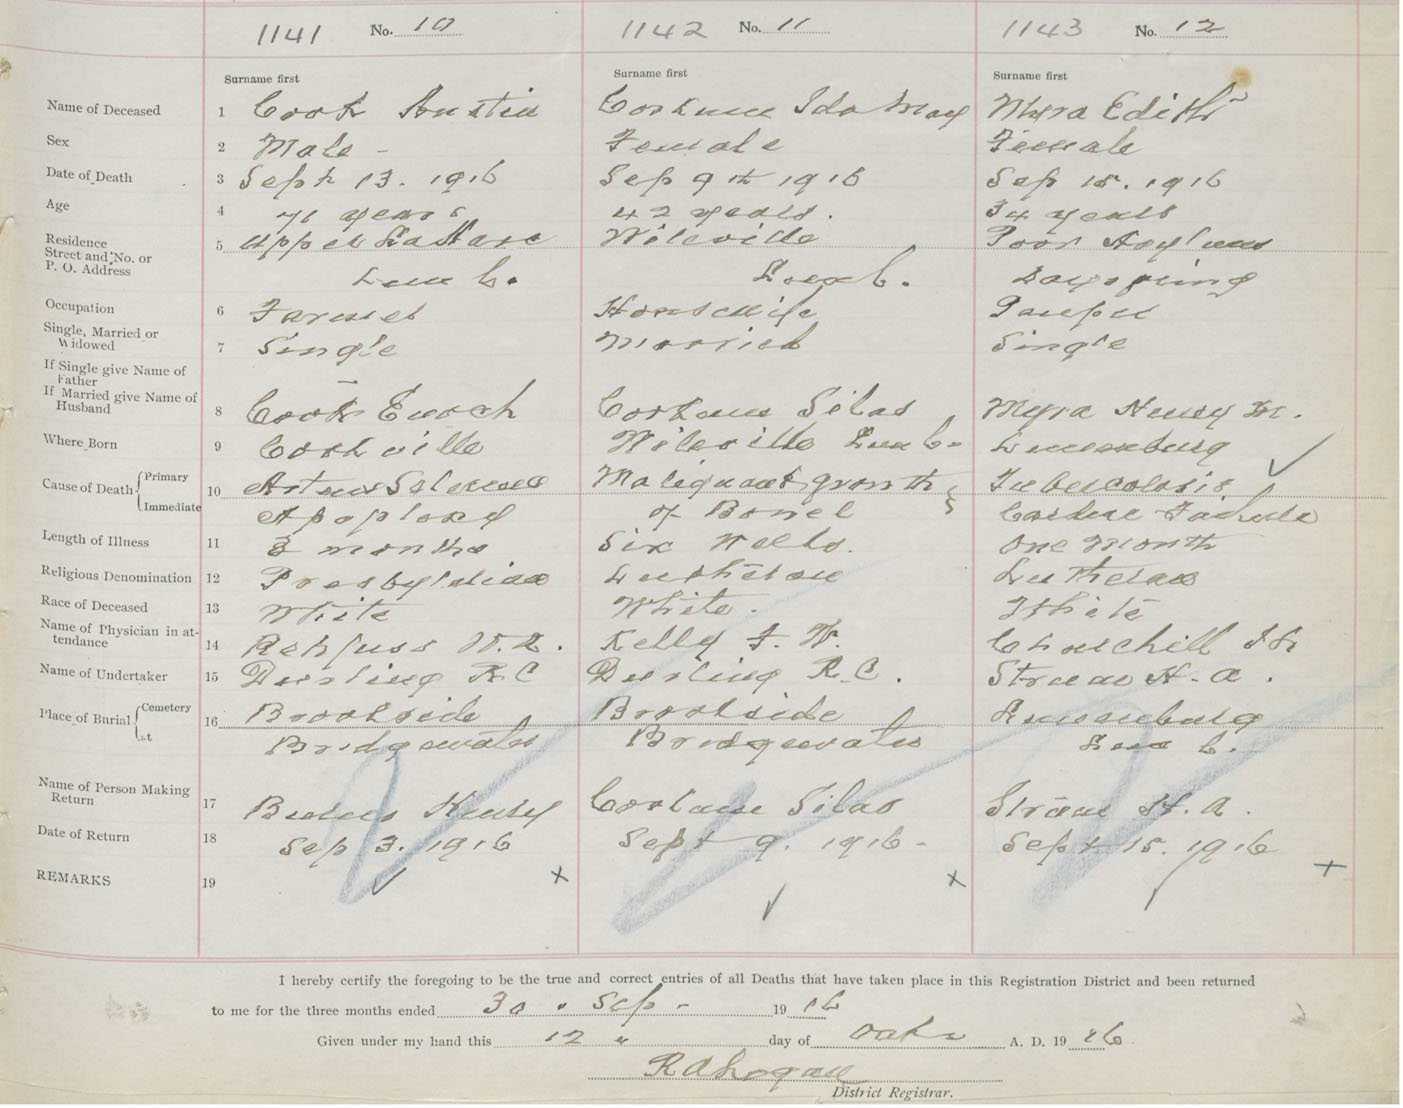 1141 No. 10 1142 No. 11 1143 No. 12
Surname first Surname first Surname first
Name of Deceased 1 Cook Austin Corkum Ida May Myra Edith
Sex 2 Male - Female Female
Date of Death 3 Sept 13. 1916 Sep 9th 1916 Sep 15. 1916
Age 4 71 years 42 years. 34 years
Residence
Street and No. or 5 Upper LaHave Wileville Poor Asylum
P. O. Address
Lun C. Lun C. Dayspring
Occupation 6 Farmer Housewife Pauper
Single, Married or
Widowed 7 Single Married Single
If Single give Name of
Father
If Married give Name of
Husband 8 Cook Enoch Corkum Silas Myra Henry
Where Born 9 Cookville Wileville Lun C- Lunenburg
Cause of Death Primary 10 Malignant growth Tuberculosis
Immediate Apoplexy of Bowel Cardiac Failure
Length of Illness 11 3 months Six Weeks. One Month
Religious Denomination 12 Presbyterian Lutheran Lutheran
Race of Deceased 13 White White. White
Name of Physician in at-
tendance 14 Rehfuss W. N. Kelly F. W. Churchill
Name of Undertaker 15 Dursling R. C Dursling R. C. H. A.
Place of Burial Cemetery 16 Brookside Brookside Lunenburg
Bridgewater Bridgewater Lun C.
Name of Person Making
Return 17 Henry Corkum Silas H. A.
Date of Return 18 Sep 3. 1916 Sept 9. 1916- Sept 15. 1916
REMARKS 19
I hereby certify the foregoing to be the true and correct entries of all Deaths that have taken place in this Registration District and been returned
to me for the three months ended 30 " Sep - 19 16
Given under my hand this 12 " day of A. D. 19 16
District Registrar.